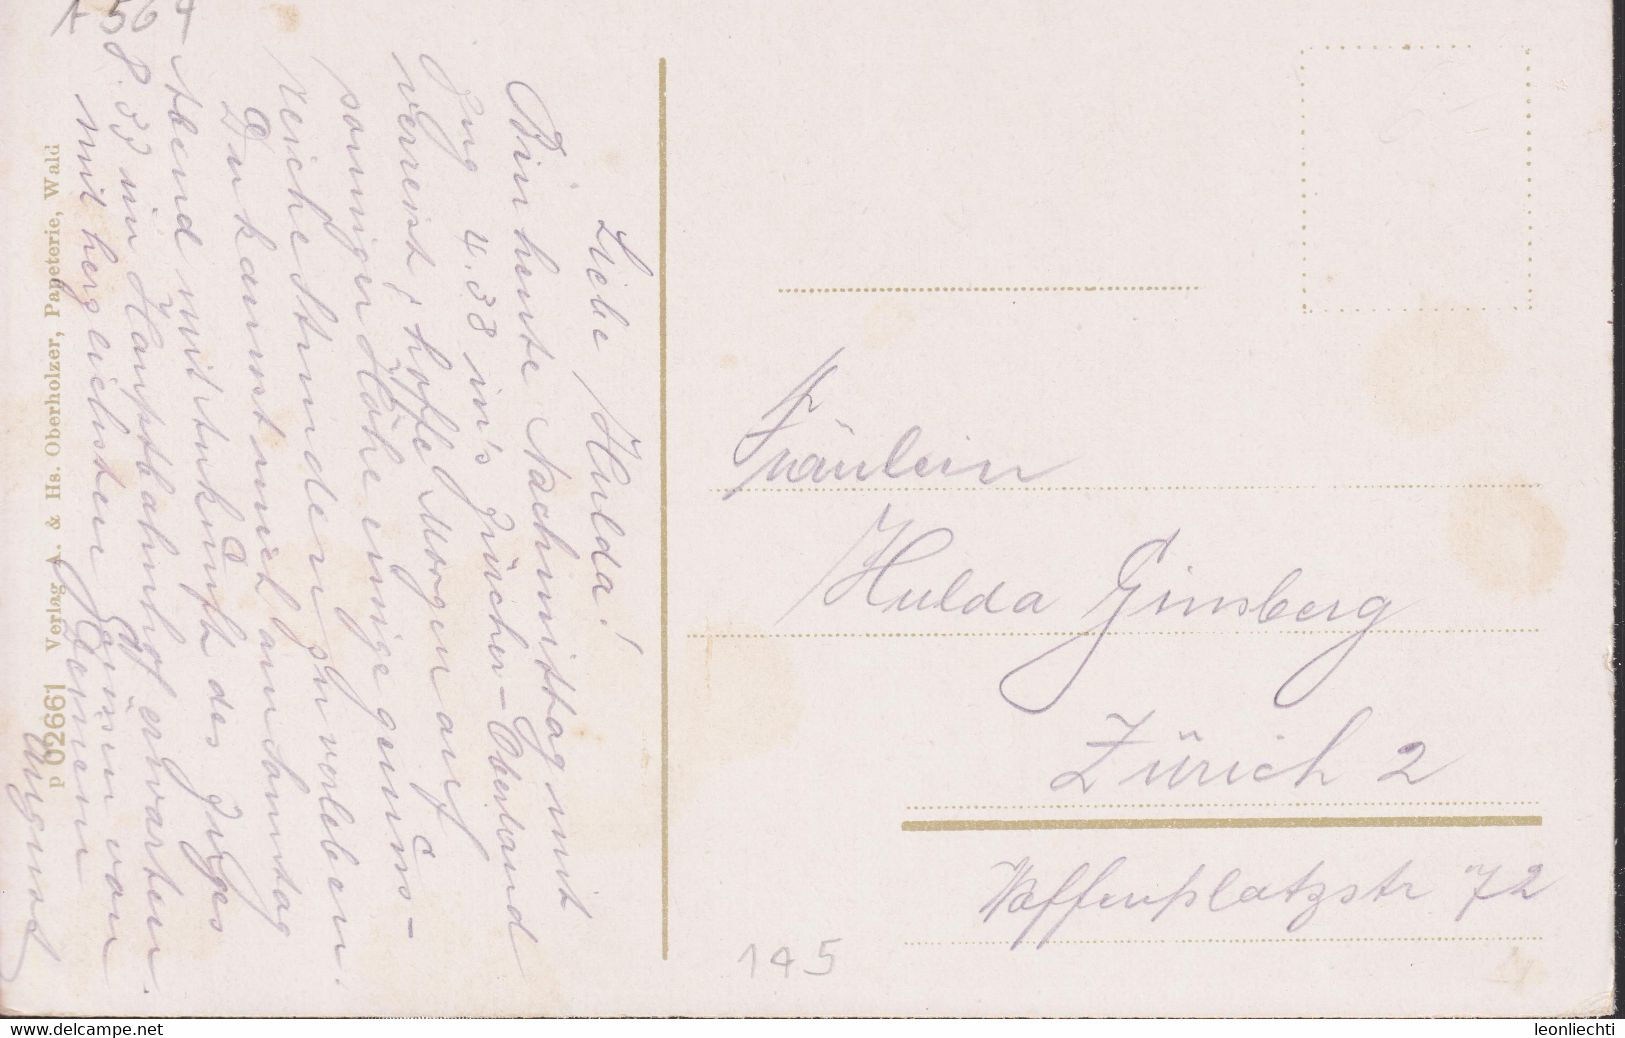 Liebe Hulda!
Bin heute Nachmittag mit
Zug 4.38 in's Zürcher-Oberland
verreist; hoffe Morgen auf
sonniger Höhe einige genüss-
reiche Stunden zu verleben.
Du kannst mich am Sonntag
Abend mit Ankunft des Zuges
8.33 im Hauptbahnhof erwarten.
mit herzlichsten Grüssen von
Deinem
August
p 02661 Verlag A. & Hs. Oberholzer, Papeterie, Wald
A 564
Fräulein
Hulda Ginsberg
Zürich 2
Waffenplatzstr 72
145
www.delcampe.net
leonliechti